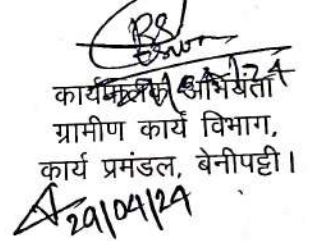 कार्यपालक अभियंता
ग्रामीण कार्य विभाग,
कार्य प्रमंडल, बेनीपट्टी।
29/04/24